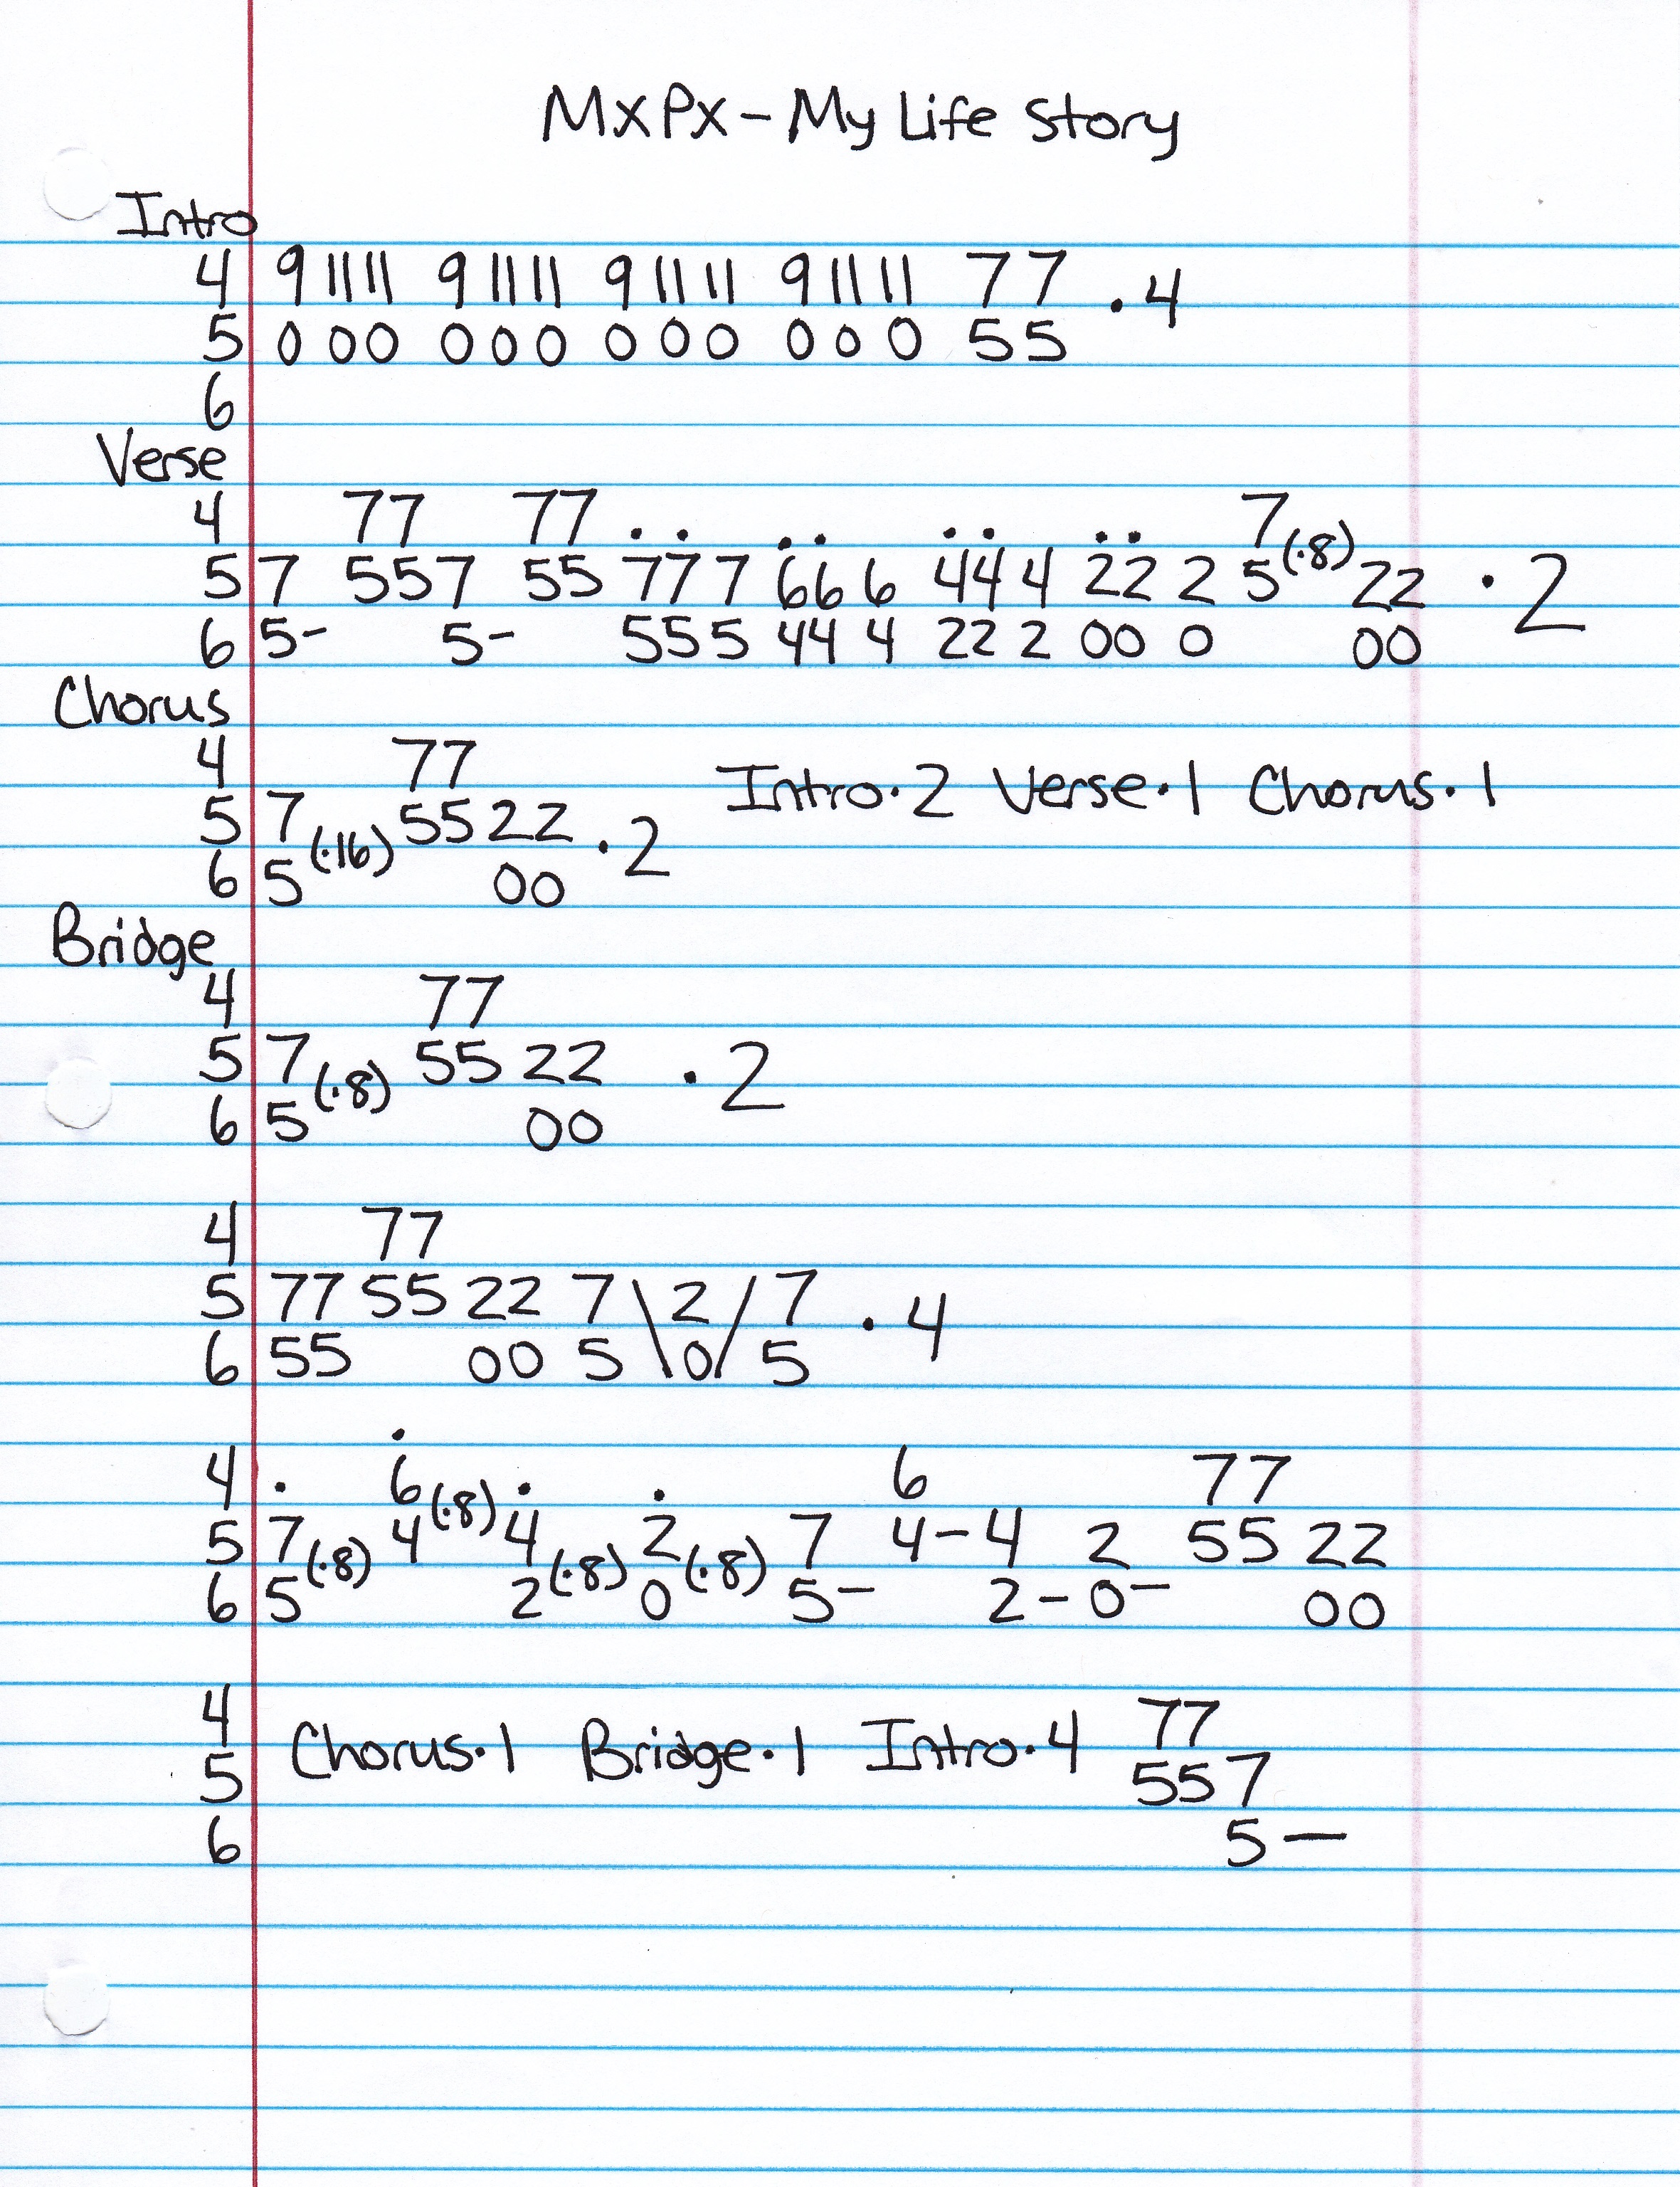 MXPX - My Life Story
Intro
4 9 11 11 9 11 11 9 11 11 9 11 11 7 7 · 4
5 0 0 0 0 0 0 0 0 0 0 0 0 5 5
6
Verse
4 77 77 . . . . . . . . 7
5 7 55 7 55 77 7 66 6 44 4 22 2 5 (·8) 22 · 2
6 5- 5- 55 5 44 4 22 2 00 0 00
Chorus
4 77 Intro · 2 Verse · 1 Chorus · 1
5 7 (·16) 55 22 · 2
6 5 00
Bridge
4 77
5 7 (·8) 55 22 · 2
6 5 00
4 77
5 77 55 22 7 \ 2 / 7 · 4
6 55 00 5 \ 0 / 5
4 . 6 (·8) . . 6 77
5 7 (·8) 4 4 2 7 4 - 4 2 55 22
6 5 2 (·8) 0 (·8) 5 - 2 - 0 - 00
4 77
5 Chorus · 1 Bridge · 1 Intro · 4 55 7
6 5 —